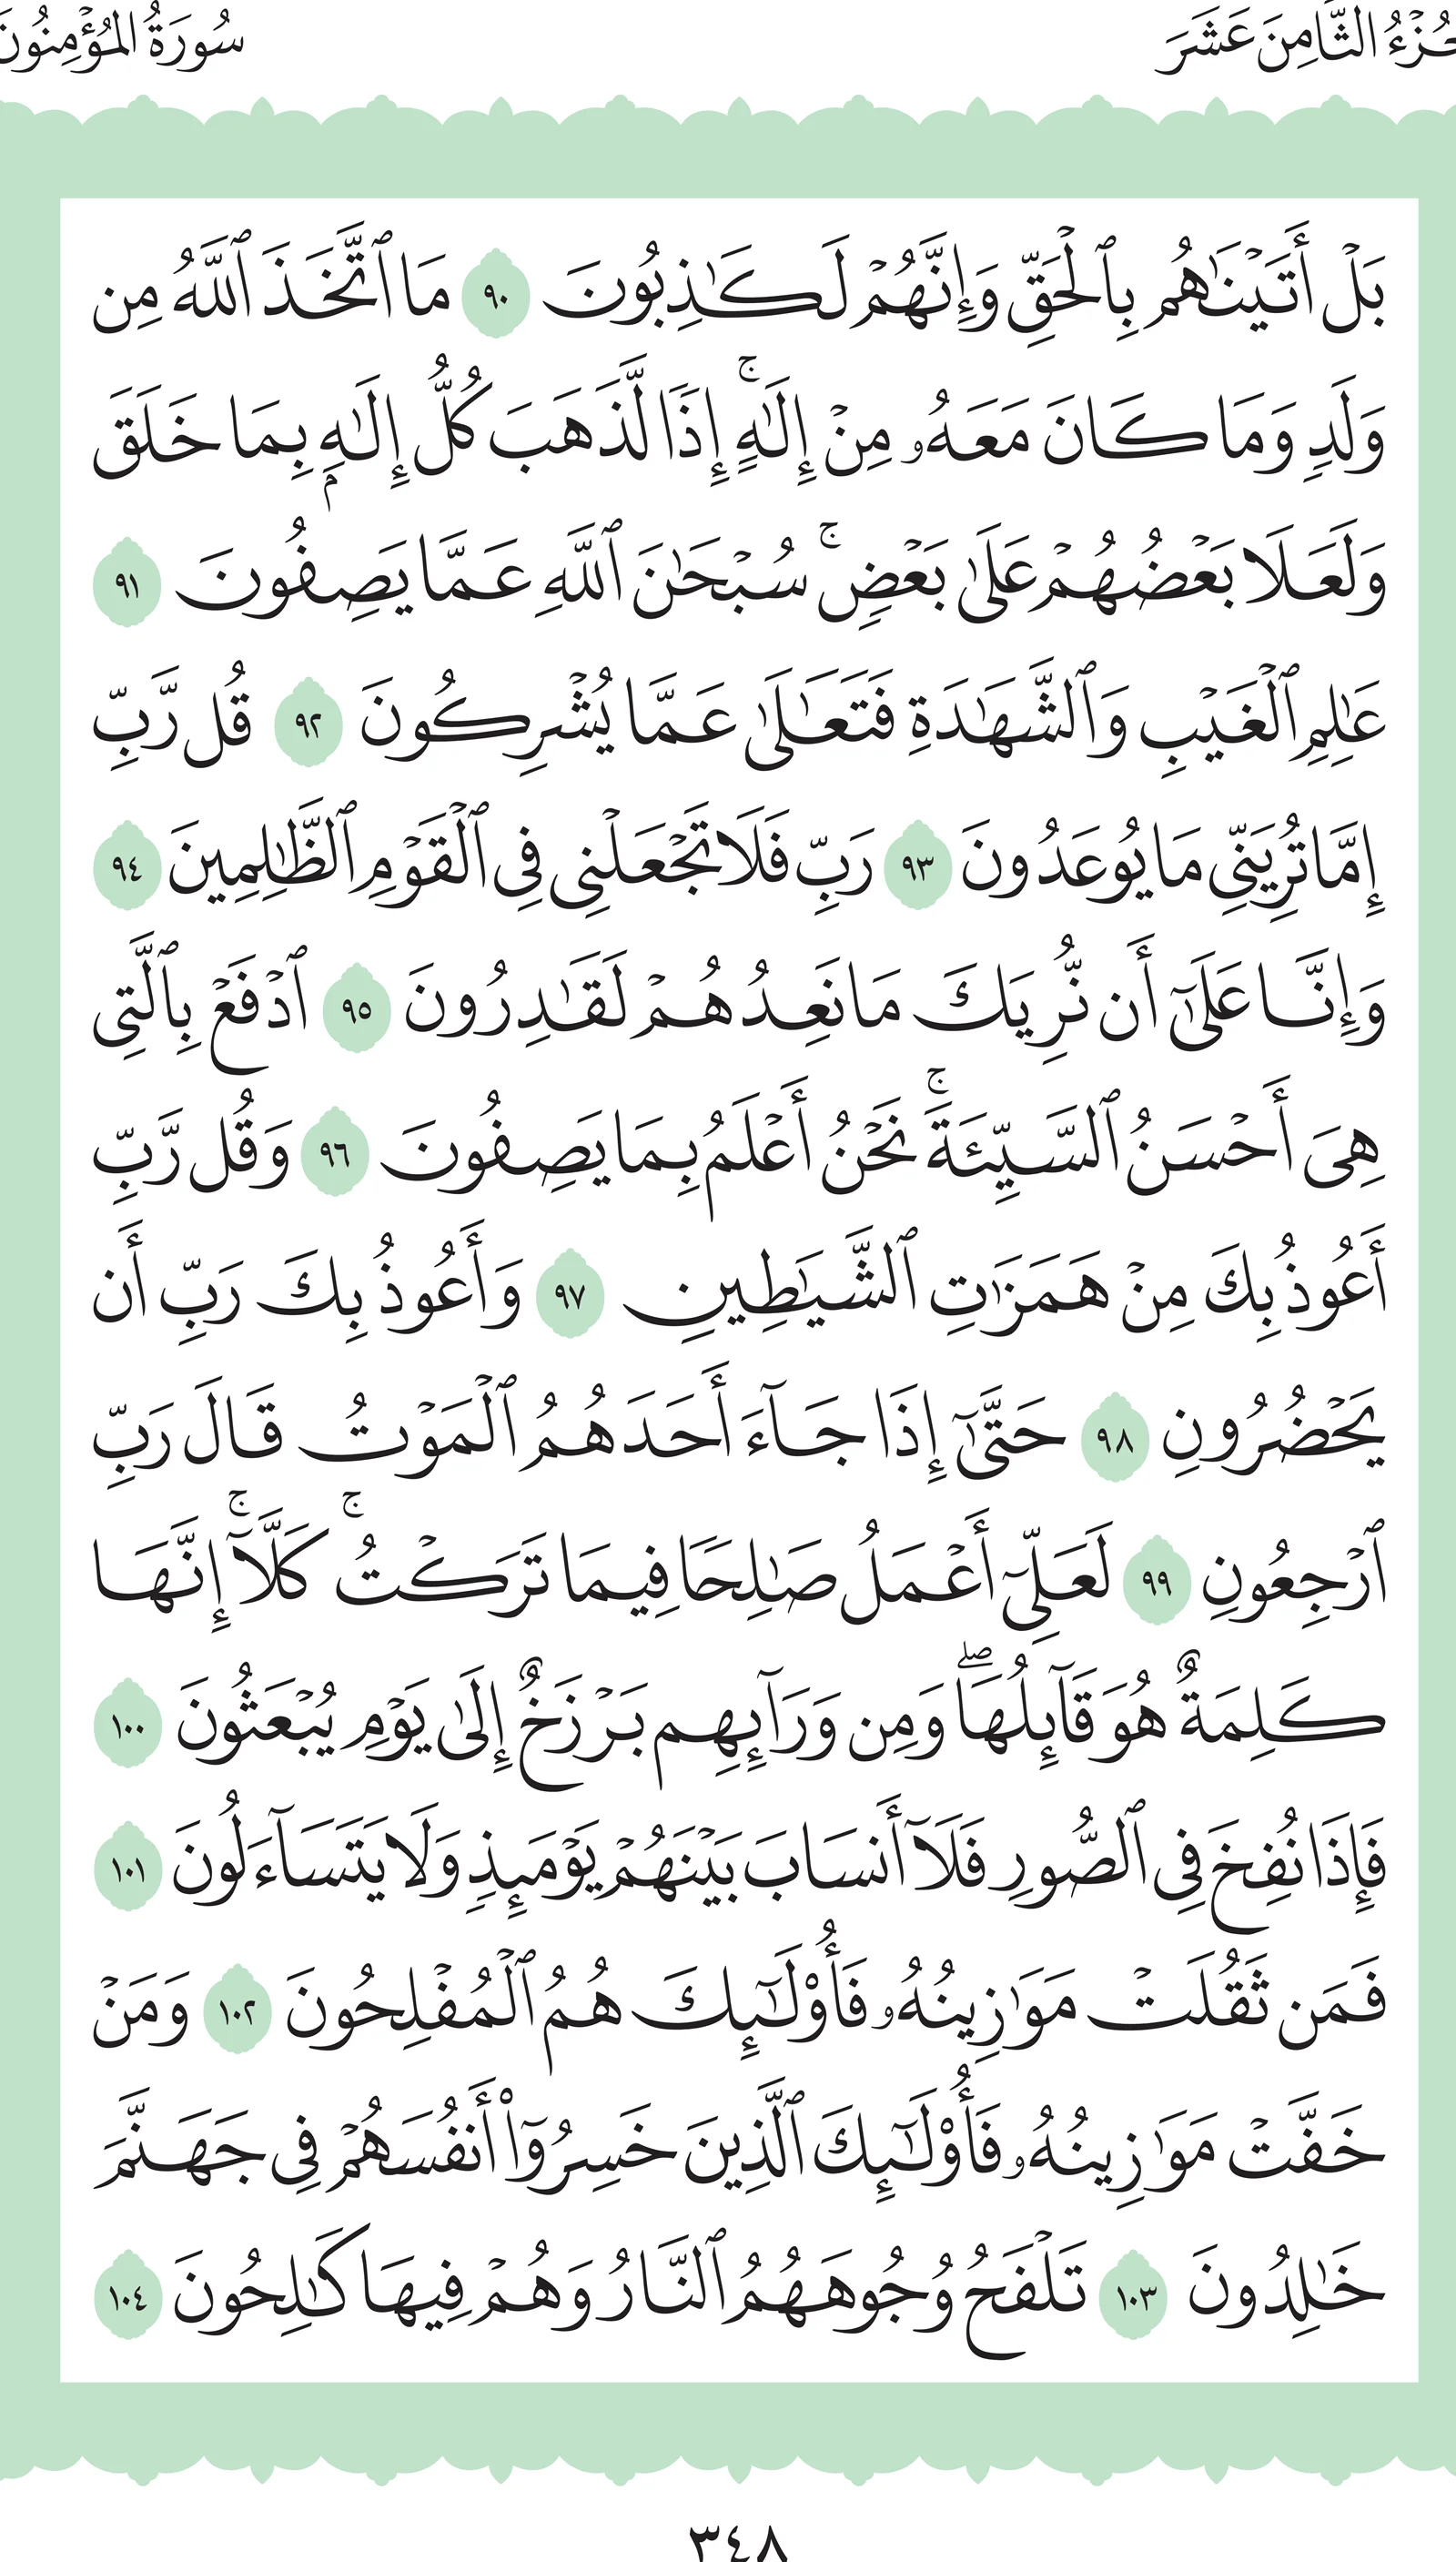 جُزْءُ الثَّامِنَ عَشَرَ سُورَةُ المُؤْمِنُونَ
بَلْ أَتَيْنَٰهُم بِٱلْحَقِّ وَإِنَّهُمْ لَكَٰذِبُونَ ٩٠ مَا ٱتَّخَذَ ٱللَّهُ مِن
وَلَدٍ وَمَا كَانَ مَعَهُۥ مِنْ إِلَٰهٍۚ إِذًا لَّذَهَبَ كُلُّ إِلَٰهٍۭ بِمَا خَلَقَ
وَلَعَلَا بَعْضُهُمْ عَلَىٰ بَعْضٍۚ سُبْحَٰنَ ٱللَّهِ عَمَّا يَصِفُونَ ٩١
عَٰلِمِ ٱلْغَيْبِ وَٱلشَّهَٰدَةِ فَتَعَٰلَىٰ عَمَّا يُشْرِكُونَ ٩٢ قُل رَّبِّ
إِمَّا تُرِيَنِّى مَا يُوعَدُونَ ٩٣ رَبِّ فَلَا تَجْعَلْنِى فِى ٱلْقَوْمِ ٱلظَّٰلِمِينَ ٩٤
وَإِنَّا عَلَىٰٓ أَن نُّرِيَكَ مَا نَعِدُهُمْ لَقَٰدِرُونَ ٩٥ ٱدْفَعْ بِٱلَّتِى
هِىَ أَحْسَنُ ٱلسَّيِّئَةَۚ نَحْنُ أَعْلَمُ بِمَا يَصِفُونَ ٩٦ وَقُل رَّبِّ
أَعُوذُ بِكَ مِنْ هَمَزَٰتِ ٱلشَّيَٰطِينِ ٩٧ وَأَعُوذُ بِكَ رَبِّ أَن
يَحْضُرُونِ ٩٨ حَتَّىٰٓ إِذَا جَآءَ أَحَدَهُمُ ٱلْمَوْتُ قَالَ رَبِّ
ٱرْجِعُونِ ٩٩ لَعَلِّىٓ أَعْمَلُ صَٰلِحًا فِيمَا تَرَكْتُۚ كَلَّآۚ إِنَّهَا
كَلِمَةٌ هُوَ قَآئِلُهَاۖ وَمِن وَرَآئِهِم بَرْزَخٌ إِلَىٰ يَوْمِ يُبْعَثُونَ ١٠٠
فَإِذَا نُفِخَ فِى ٱلصُّورِ فَلَآ أَنسَابَ بَيْنَهُمْ يَوْمَئِذٍ وَلَا يَتَسَآءَلُونَ ١٠١
فَمَن ثَقُلَتْ مَوَٰزِينُهُۥ فَأُو۟لَٰٓئِكَ هُمُ ٱلْمُفْلِحُونَ ١٠٢ وَمَنْ
خَفَّتْ مَوَٰزِينُهُۥ فَأُو۟لَٰٓئِكَ ٱلَّذِينَ خَسِرُوٓا۟ أَنفُسَهُمْ فِى جَهَنَّمَ
خَٰلِدُونَ ١٠٣ تَلْفَحُ وُجُوهَهُمُ ٱلنَّارُ وَهُمْ فِيهَا كَٰلِحُونَ ١٠٤
٣٤٨